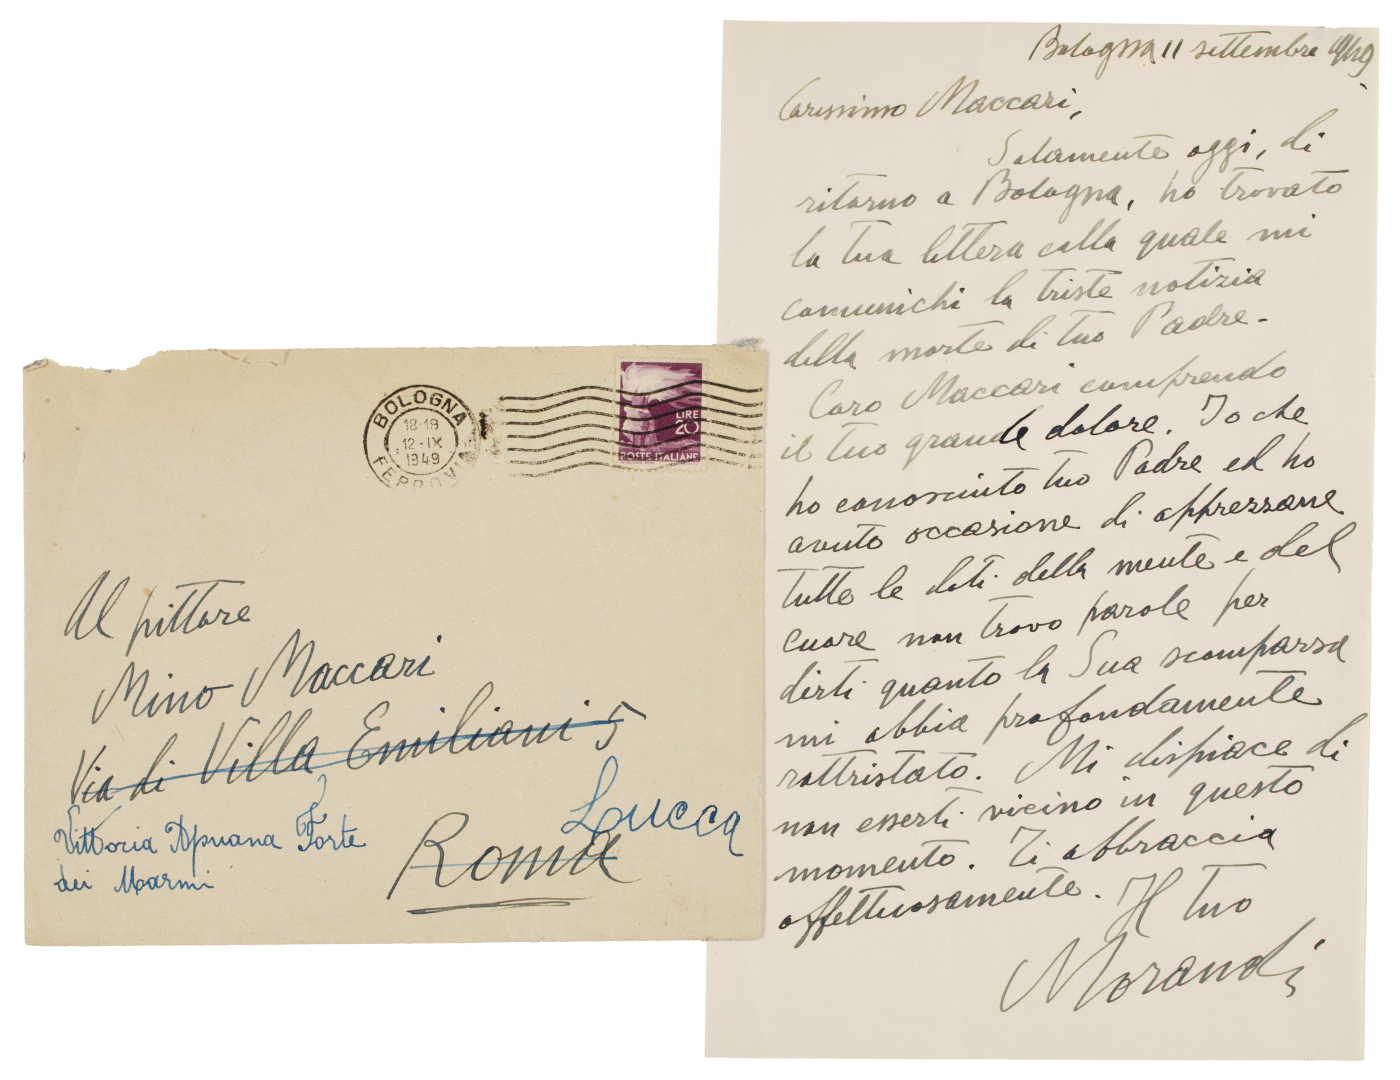 BOLOGNA
18-19
12-IX
1949
FERROVIA
LIRE
20
POSTE ITALIANE
Al pittore
Mino Maccari
Via di Villa Emiliani 5
Lucca
Vittoria Apuana Forte
dei Marmi
Roma
Bologna 11 settembre 1949
Carissimo Maccari,
Solamente oggi, di
ritorno a Bologna, ho trovato
la tua lettera colla quale mi
comunichi la triste notizia
della morte di tuo Padre.
Caro Maccari comprendo
il tuo grande dolore. Io che
ho conosciuto tuo Padre ed ho
avuto occasione di apprezzare
tutte le doti della mente e del
cuore non trovo parole per
dirti quanto la Sua scomparsa
mi abbia profondamente
rattristato. Mi dispiace di
non esserti vicino in questo
momento. Ti abbraccia
affettuosamente. Il tuo
Morandi